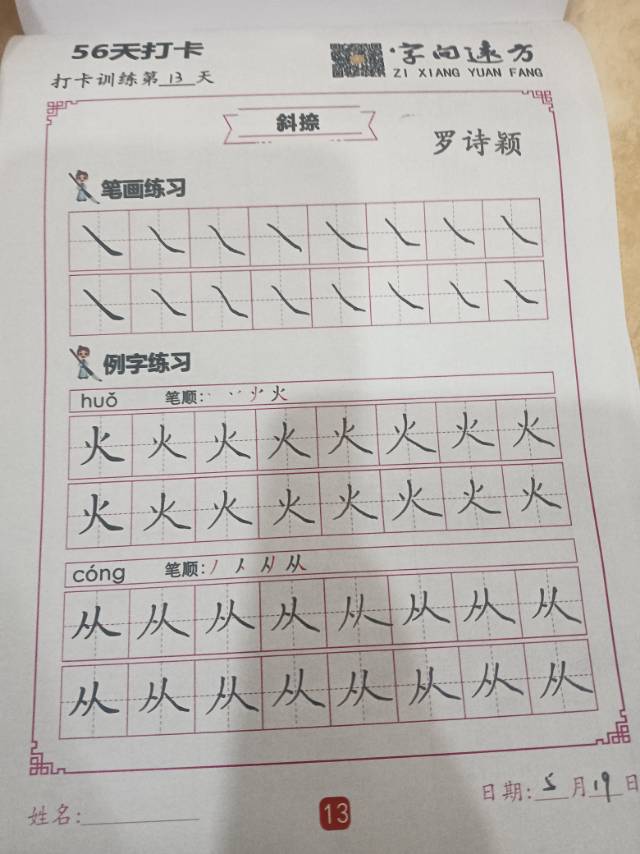 56天打卡
字向远方
打卡训练第13天
ZI XIANG YUAN FANG
斜捺
罗诗颖
笔画练习
㇏㇏㇏㇏㇏㇏㇏㇏
㇏㇏㇏㇏㇏㇏㇏㇏
例字练习
huǒ 笔顺: 火
火火火火火火火火
火火火火火火火火
cóng 笔顺: 丿 从
从从从从从从从从
从从从从从从从从
日期:5月19日
姓名:
13